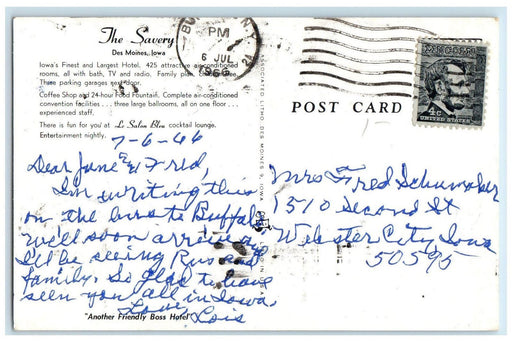 The Savery
Des Moines, Iowa
Iowa's Finest and Largest Hotel. 425 attractive air-conditioned
rooms, all with bath, TV and radio. Family plan.
Three parking garages next door.
Coffee Shop and 24-hour Food Fountain. Complete air-conditioned
convention facilities . . . three large ballrooms, all on one floor . . .
experienced staff.
There is fun for you at Le Salon Bleu cocktail lounge.
Entertainment nightly.
7-6-66
Dear June & Fred,
I'm writing this
on the bus to Buffalo
We'll soon arrive and
I'll be seeing Russ and
family. So glad to have
seen you all in Iowa.
Love,
Lois
"Another Friendly Boss Hotel"
ASSOCIATED LITHO. DES MOINES 9, IOWA
N.Y.
PM
6 JUL
1966
4c
UNITED STATES
POST CARD
Mrs Fred Schumaker
1510 Second St
Webster City, Iowa
50595